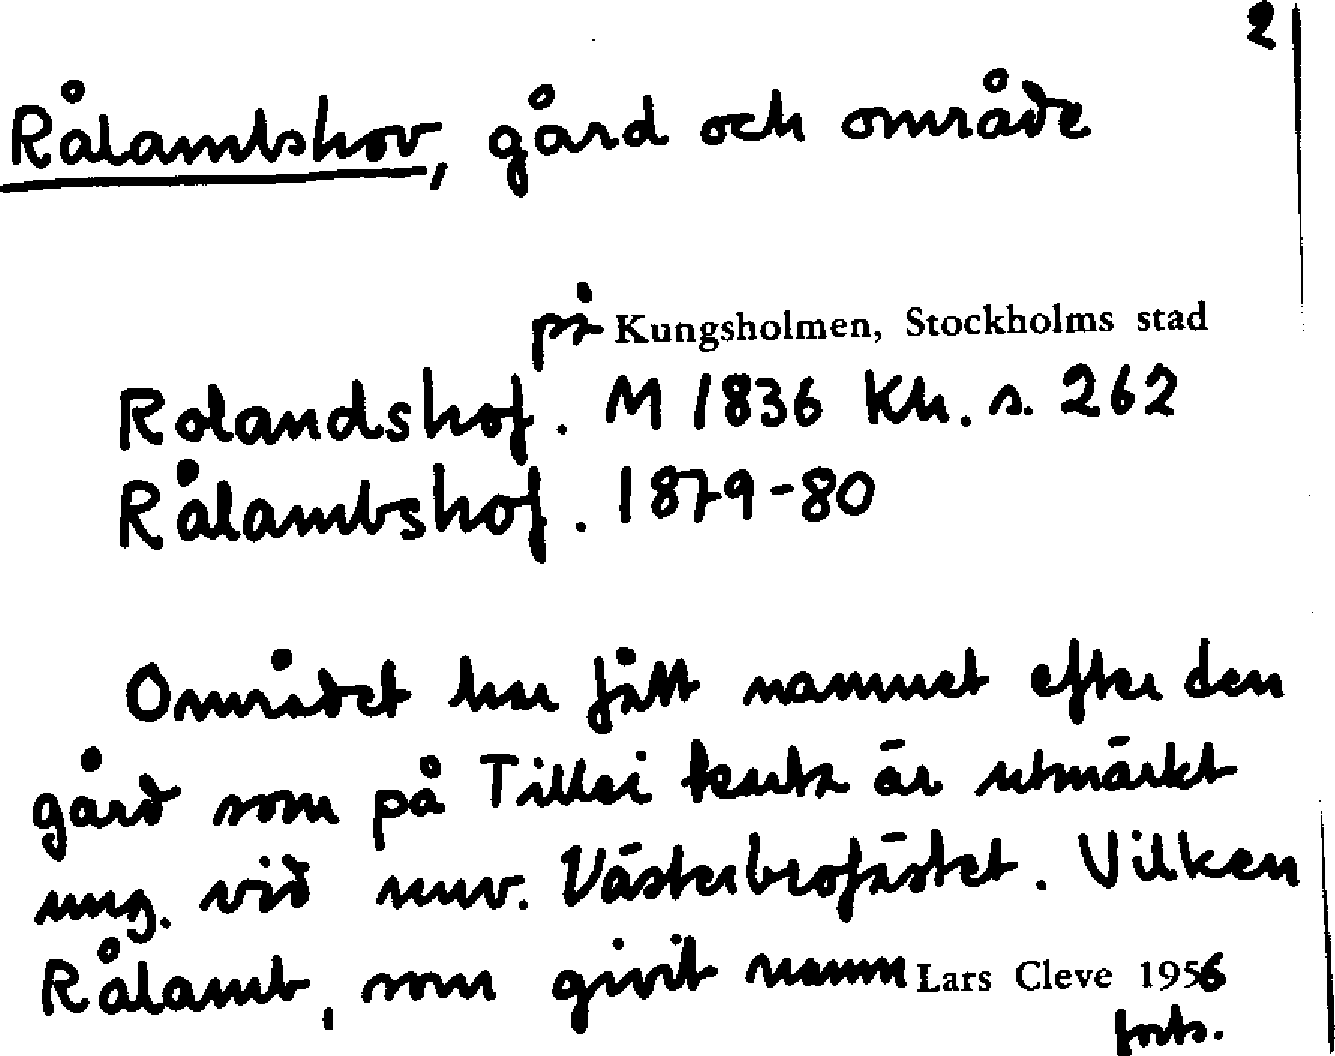 2
Rålambshov, gård och område
på Kungsholmen, Stockholms stad
Rolandshof. M 1836 Kh. s. 262
Rålambshof. 1879-80
Området har fått namnet efter den
gård som på Tillæi karta är utmärkt
ung. vid nuv. Västerbrofästet. Vilken
Rålamb, som givit namn Lars Cleve 1956
forts.